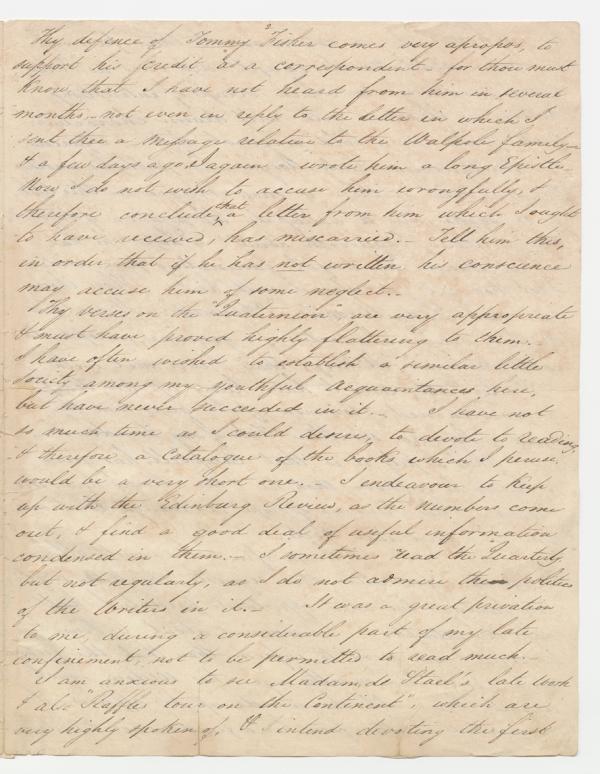 Thy defence of Tommy Fisher comes very apropos, to
support his credit as a correspondent - for thou must
know, that I have not heard from him in several
months - not even in reply to the letter in which I
sent thee a message relative to the Walpole family -
& a few days ago I again wrote him a long Epistle
Now I do not wish to accuse him wrongfully, &
therefore conclude that a letter from him which I ought
to have received, has miscarried. - Tell him this,
in order that if he has not written his conscience
may accuse him "of some neglect. -
Thy verses on the "Quaternion" are very appropriate
& must have proved highly flattering to them. -
I have often wished to establish a similar little
Society among my youthful acquaintances here,
but have never succeeded in it. - I have not
so much time as I could desire, to devote to reading,
& therefore a Catalogue of the books which I peruse
would be a very short one. - I endeavour to keep
up with the Edinburg Review, as the numbers come
out, & find a good deal of useful information
condensed in them. - I sometimes read the "Quarterly"
but not regularly, as I do not admire the politics
of the writers in it. - It was a great privation
to me, during a considerable part of my late
confinement, not to be permitted to read much. -
I am anxious to see Madam de Stael's late work
& also "Raffles tour on the Continent", which are
very highly spoken of, & I intend devoting the first